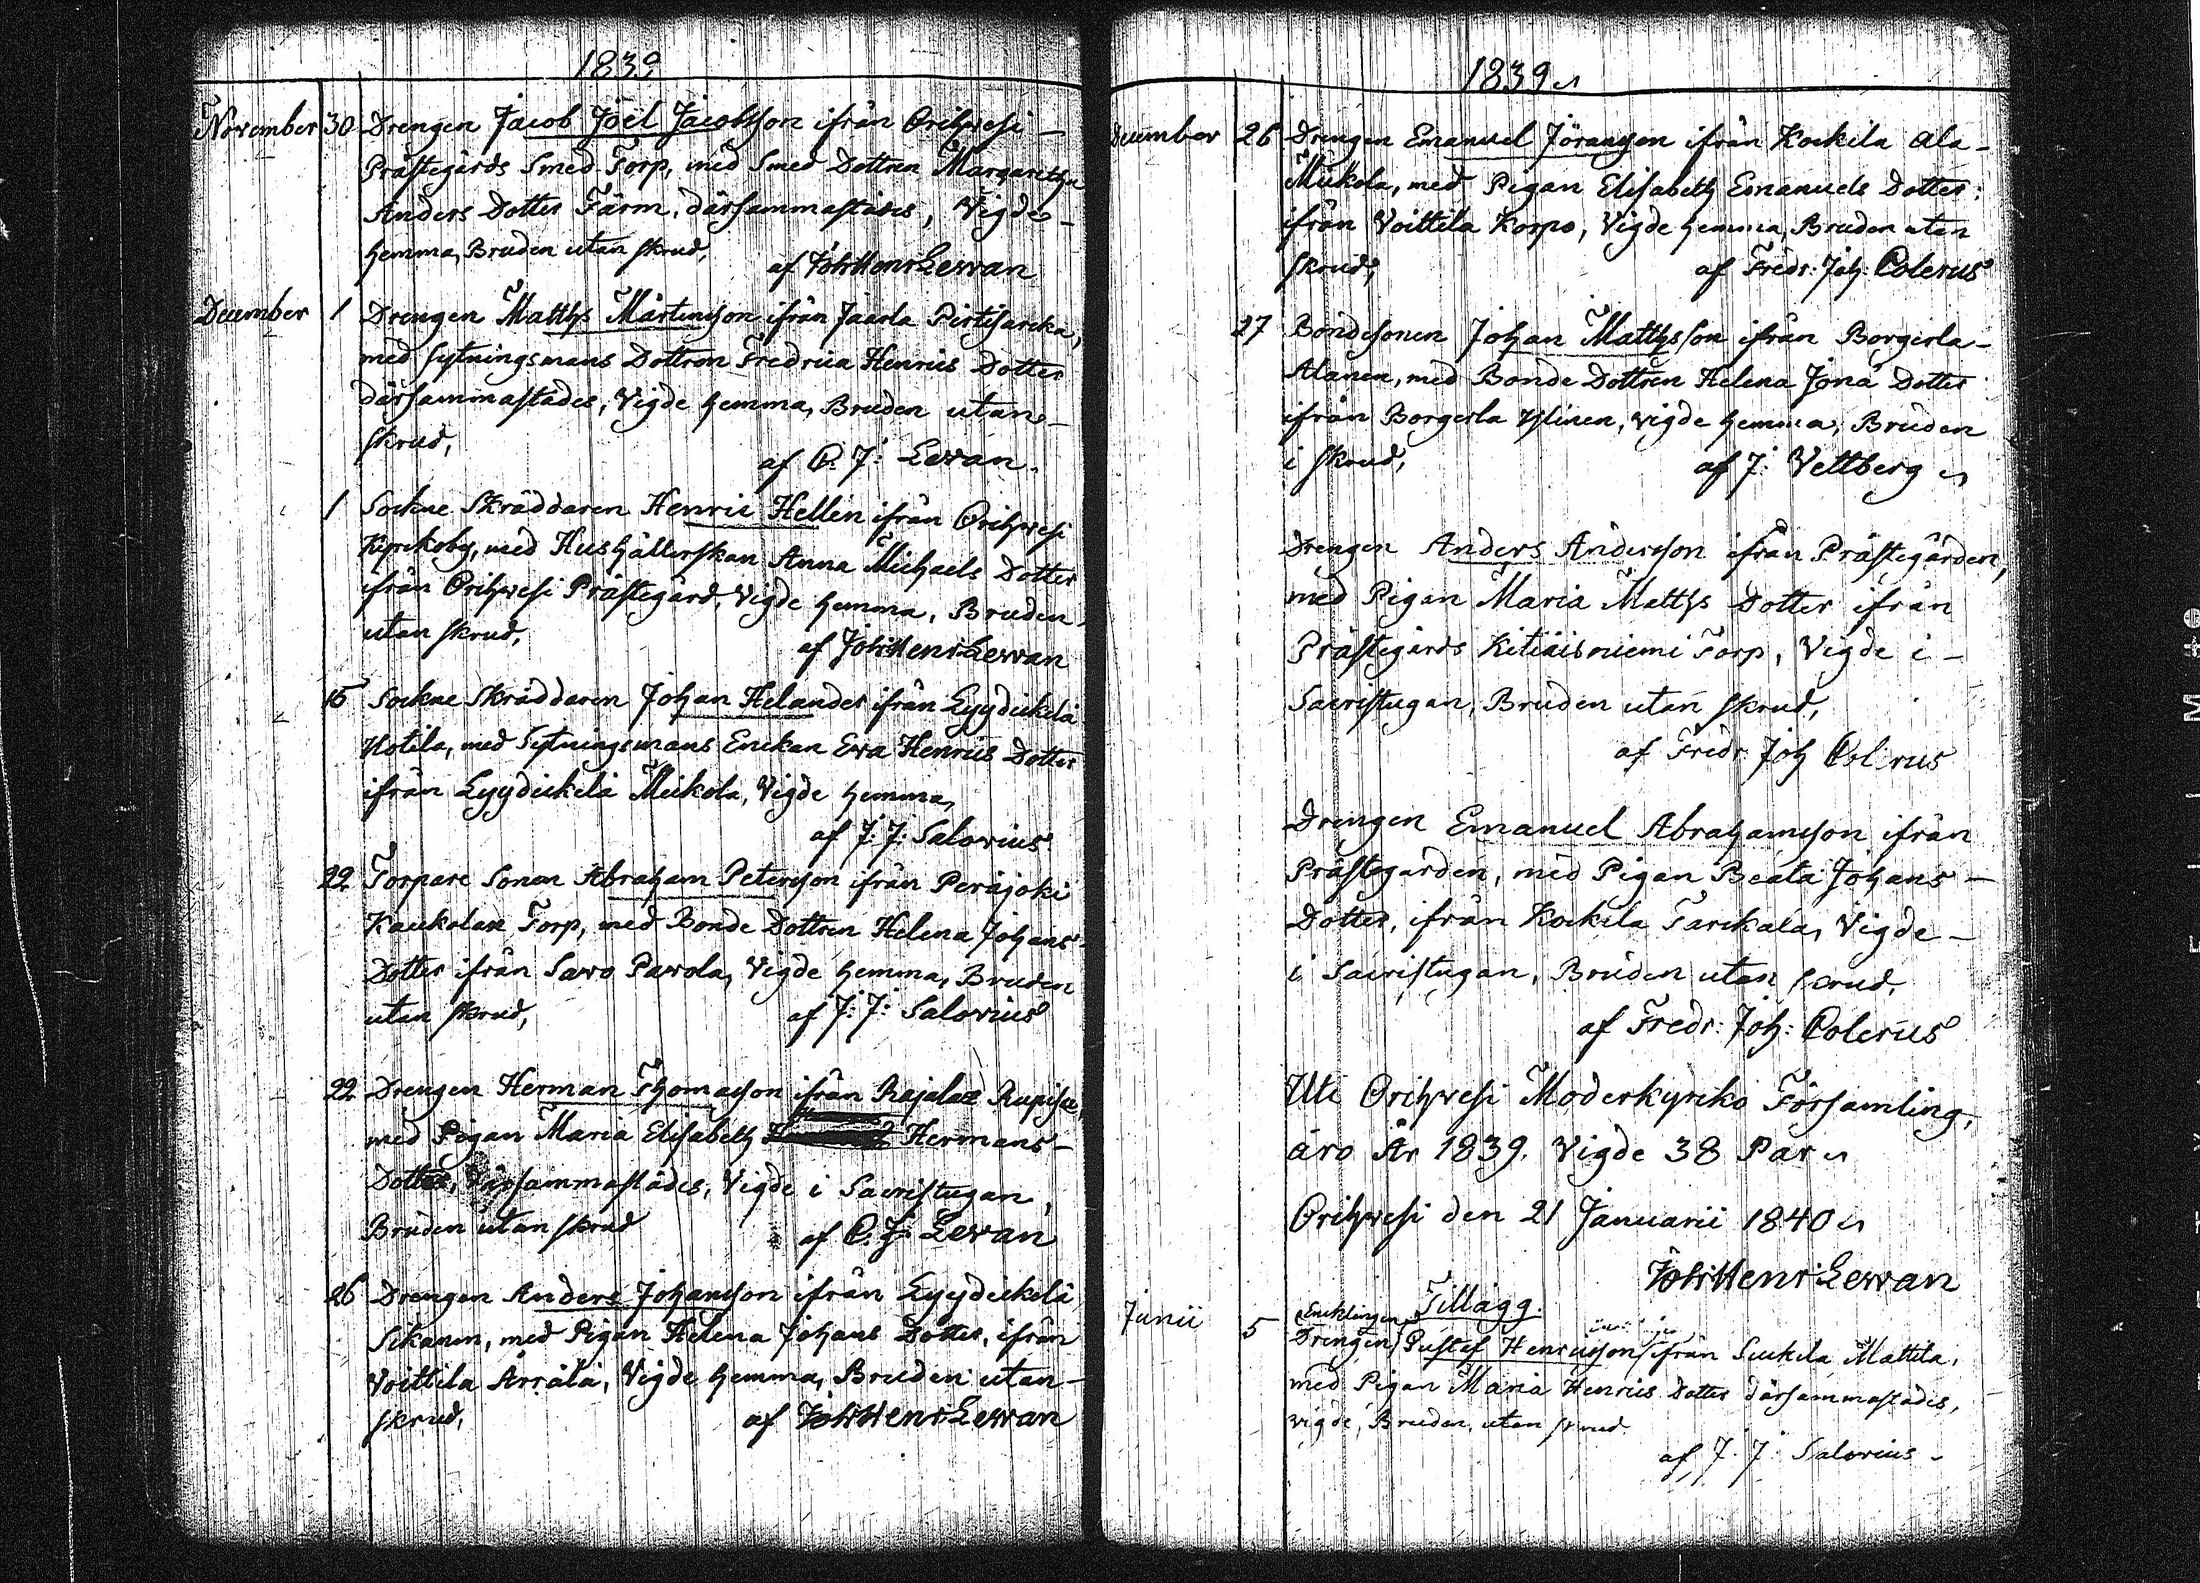 1839
November 30 Drengen Jacob Joël Jacobsson ifrån Orihvesi
Prästegårds Smed Torp, med Smed Dottren Margaretha
Anders Dotter Färm, därsammastädes, Vigde
hemma, Bruden utan skrud,
af Joh: Henr: Lewan
December 1 Drengen Matths Mårtensson ifrån Jaarla Pirttisarcka,
med Sytningsmans Dottron Fredrica Henrics Dotter
därsammastädes, Vigde hemma, Bruden utan
skrud,
af C. J: Lewan.
1 Sockne Skräddaren Henric Hellén ifrån Orihvesi
Kyrckoby, med Hushållerskan Anna Michaels Dotter
ifrån Orihvesi Prästegård, Vigde hemma, Bruden
utan skrud,
af Joh: Henr: Lewan
15 Sockne Skräddaren Johan Helander ifrån Lyydickelä
Hotila, med Sytningsmans Enckan Ewa Henrics Dotter
ifrån Lyydickelä Mickola, Vigde hemma,
af J: J: Salovius
22 Torpare Sonen Abraham Petersson ifrån Peräjoki
Kaukolan Torp, med Bonde Dottren Helena Johans
Dotter ifrån Savo Pavola, Vigde hemma, Bruden
utan skrud,
af J: J: Salovius
22 Drengen Herman Thomasson ifrån Rajalax Rupisa,
med Pigan Maria Elisabeth Hermans
Dotter, därsammastädes, Vigde i Sacristugan,
Bruden utan skrud
af C. J: Lewan
26 Drengen Anders Johansson ifrån Lyydickelä
Sikanen, med Pigan Helena Johans Dotter, ifrån
Voittila Ärrälä, Vigde hemma, Bruden utan
skrud,
af Joh: Henr: Lewan
1839
December 26 Drengen Emanuel Göransson ifrån Kockila Ala
Mickola, med Pigan Elisabeth Emanuels Dotter
ifrån Voittila Korpo, Vigde hemma, Bruden utan
skrud,
af Fredr: Joh: Polerus
27 Bondesonen Johan Mattsson ifrån Borgerla
Alanen, med Bonde Dottren Helena Jona Dotter
ifrån Borgerla Ylinen, Vigde hemma, Bruden
i skrud,
af J: Vettberg
Drengen Anders Andersson ifrån Prästegården,
med Pigan Maria Matths Dotter ifrån
Prästegårds Kitiäisniemi Torp, Vigde i
Sacristugan, Bruden utan skrud,
af Fredr Joh Polerus
Drengen Emanuel Abrahamsson ifrån
Prästegården, med Pigan Beata Johans
Dotter, ifrån Kockila Tarckala, Vigde
i Sacristugan, Bruden utan skrud,
af Fredr: Joh: Polerus
Uti Orihvesi Moderkyrko Församling,
äro År 1839. Vigde 38 Par
Orihvesi den 21 Januarii 1840
Joh: Henr: Lewan
Tillägg.
Enklingen
Junii 5 Drengen Gustaf Henricsson ifrån Suckila Mattila,
med Pigan Maria Henrics Dotter därsammastädes,
vigde, Bruden utan skrud.
af J. J. Salovius